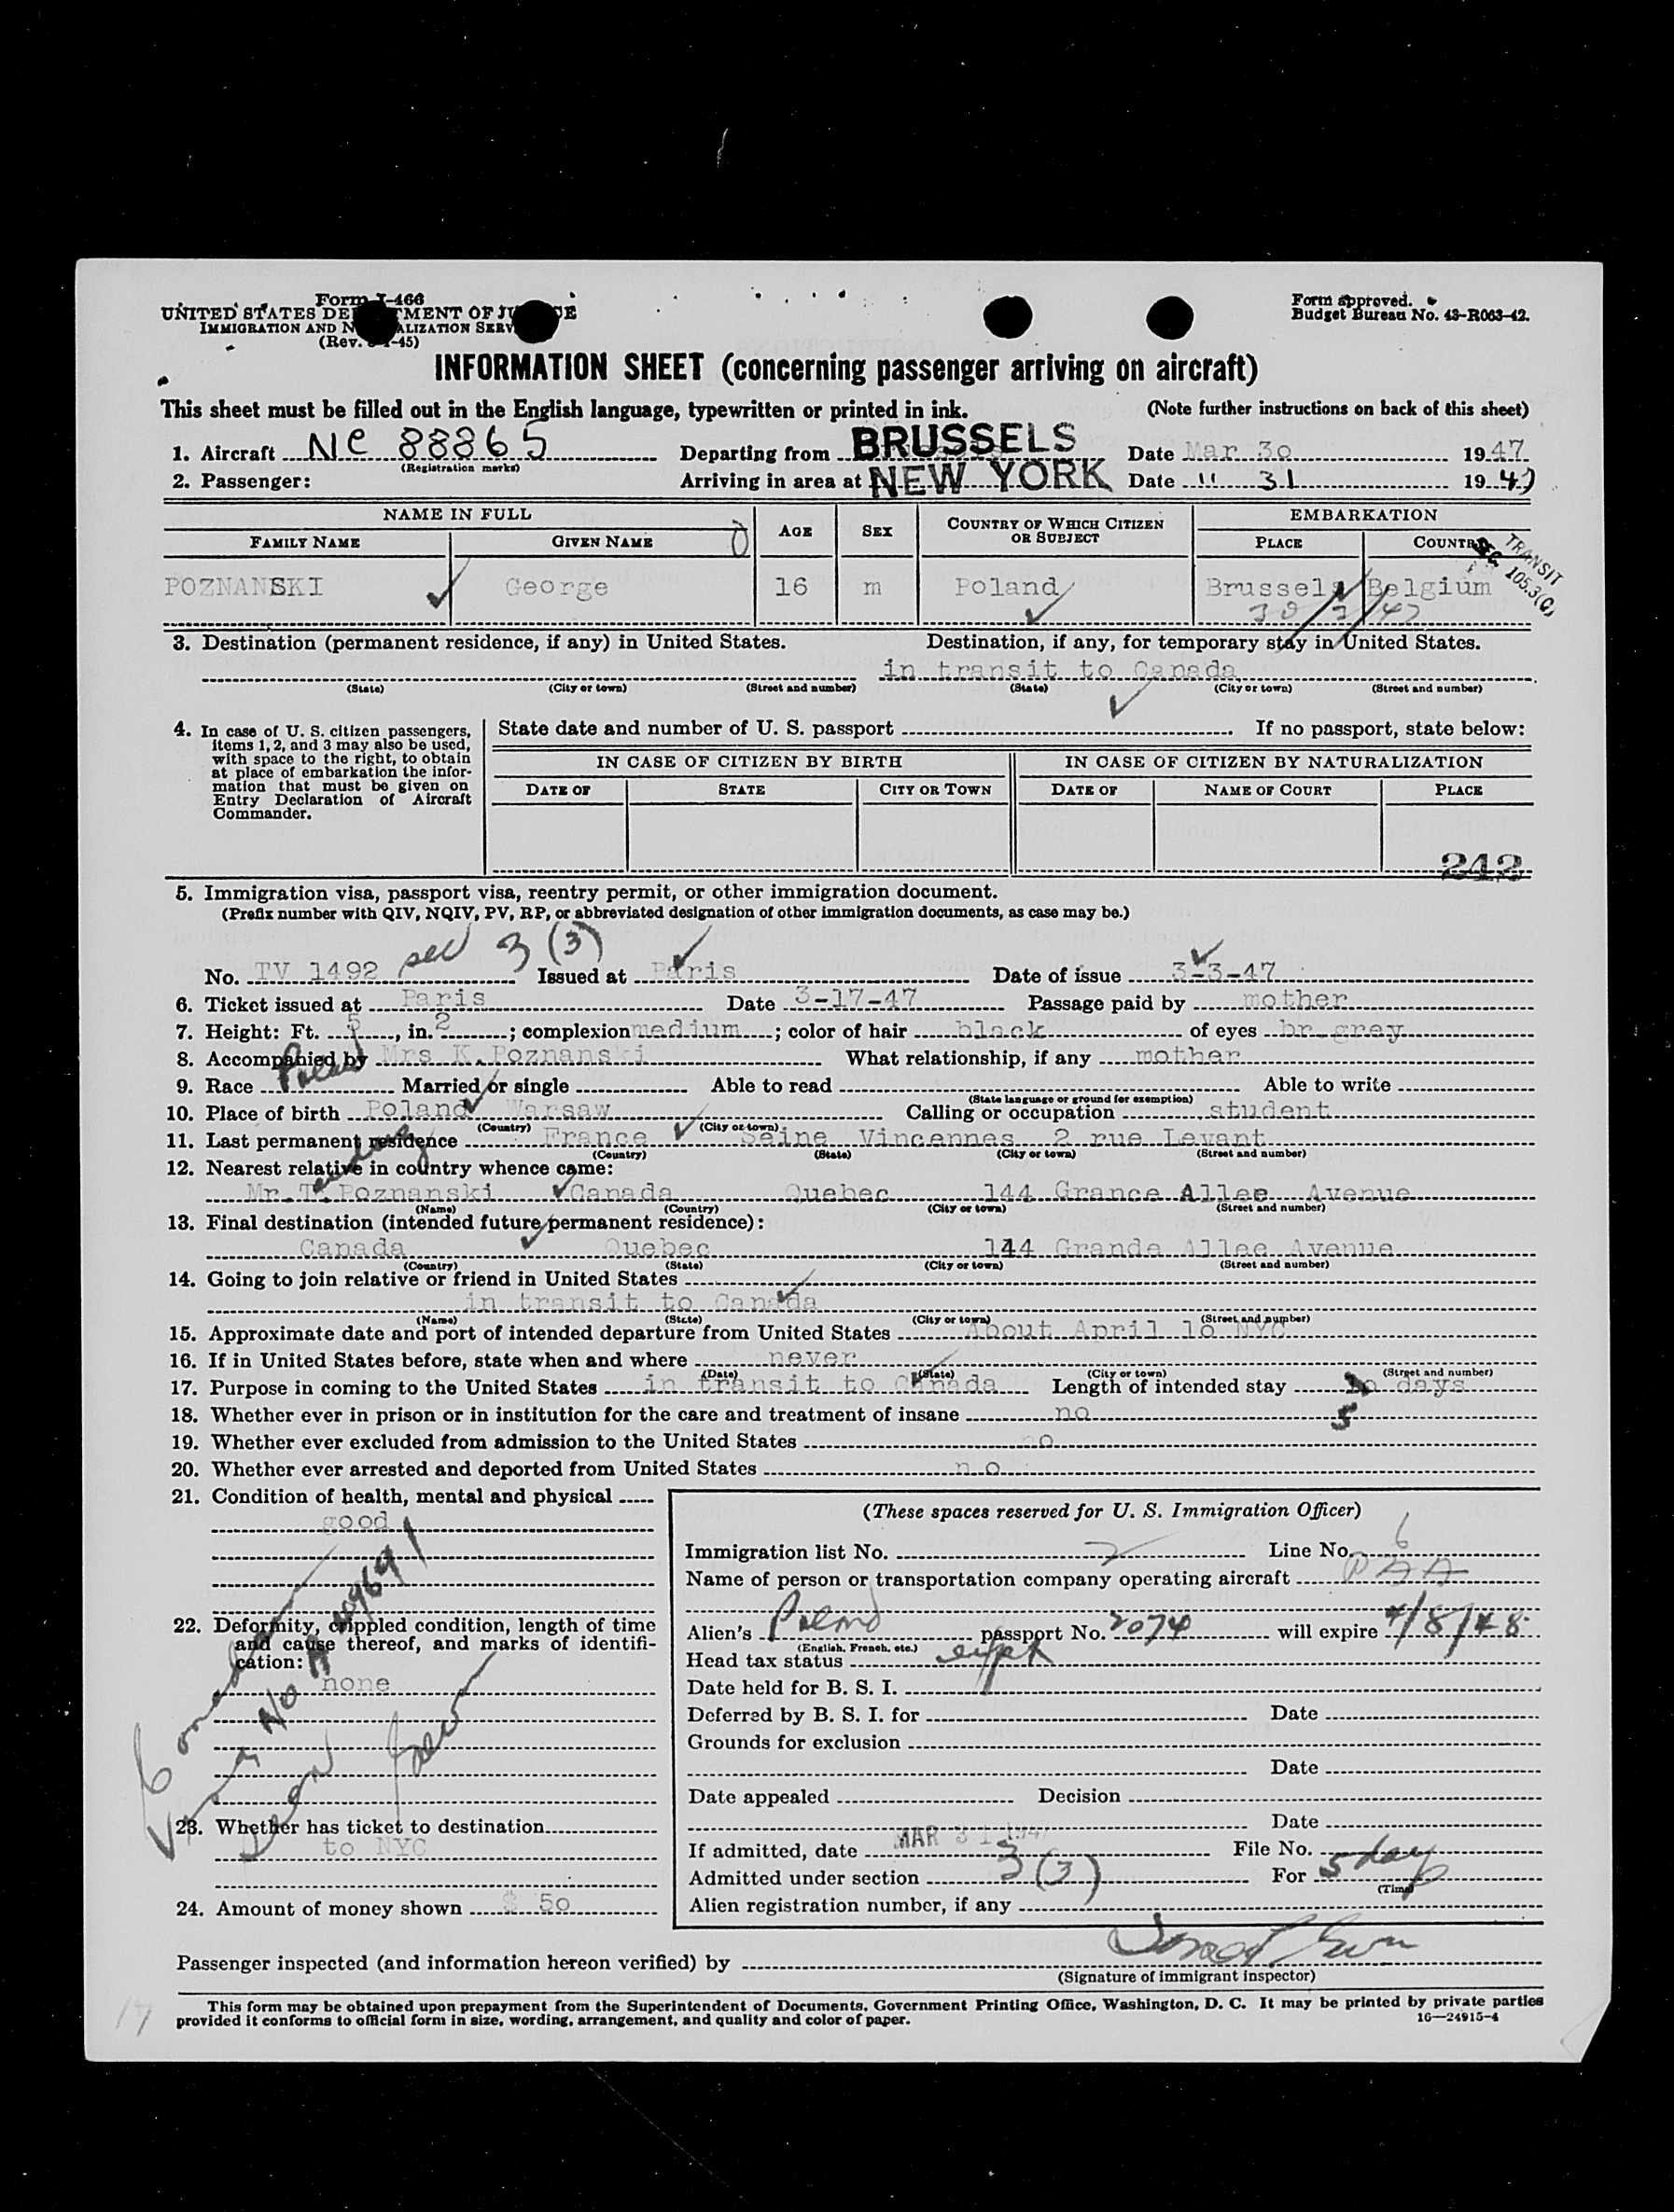 Form I-466
UNITED STATES DEPARTMENT OF JUSTICE
IMMIGRATION AND NATURALIZATION SERVICE
(Rev. -45)
Form approved.
Budget Bureau No. 43-R063-42.
INFORMATION SHEET (concerning passenger arriving on aircraft)
This sheet must be filled out in the English language, typewritten or printed in ink. (Note further instructions on back of this sheet)
1. Aircraft NC 88865 Departing from BRUSSELS Date Mar 30 1947
(Registration marks)
2. Passenger: Arriving in area at NEW YORK Date " 31 1947
NAME IN FULL AGE SEX COUNTRY OF WHICH CITIZEN OR SUBJECT EMBARKATION
FAMILY NAME GIVEN NAME PLACE COUNTRY
TRANSIT
SEC 105.3(C)
POZNANSKI George 16 m Poland Brussels Belgium
30/3/47
3. Destination (permanent residence, if any) in United States. Destination, if any, for temporary stay in United States.
in transit to Canada
(State) (City or town) (Street and number) (State) (City or town) (Street and number)
4. In case of U. S. citizen passengers, items 1, 2, and 3 may also be used, with space to the right, to obtain at place of embarkation the information that must be given on Entry Declaration of Aircraft Commander.
State date and number of U. S. passport If no passport, state below:
IN CASE OF CITIZEN BY BIRTH IN CASE OF CITIZEN BY NATURALIZATION
DATE OF STATE CITY OR TOWN DATE OF NAME OF COURT PLACE
242
5. Immigration visa, passport visa, reentry permit, or other immigration document.
(Prefix number with QIV, NQIV, PV, RP, or abbreviated designation of other immigration documents, as case may be.)
No. TV 1492 sec 3 (3) Issued at Paris Date of issue 3-3-47
6. Ticket issued at Paris Date 3-17-47 Passage paid by mother
7. Height: Ft. 5, in. 2; complexion medium; color of hair black of eyes br-grey
8. Accompanied by Mrs K. Poznanski What relationship, if any mother
9. Race Married or single Able to read Able to write
(State language or ground for exemption)
10. Place of birth Poland Warsaw Calling or occupation student
(Country) (City or town)
11. Last permanent residence France Seine Vincennes 2 rue Levant
(Country) (State) (City or town) (Street and number)
12. Nearest relative in country whence came:
Mr. T. Poznanski Canada Quebec 144 Grance Allee Avenue
(Name) (Country) (City or town) (Street and number)
13. Final destination (intended future permanent residence):
Canada Quebec 144 Grande Allee Avenue
(Country) (State) (City or town) (Street and number)
14. Going to join relative or friend in United States
in transit to Canada
(Name) (State) (City or town) (Street and number)
15. Approximate date and port of intended departure from United States About April 10 NYC
16. If in United States before, state when and where never
(Date) (State) (City or town) (Street and number)
17. Purpose in coming to the United States in transit to Canada Length of intended stay days
5
18. Whether ever in prison or in institution for the care and treatment of insane no
19. Whether ever excluded from admission to the United States no
20. Whether ever arrested and deported from United States no
21. Condition of health, mental and physical
good
22. Deformity, crippled condition, length of time and cause thereof, and marks of identification:
none
Canada
Visa No
23. Whether has ticket to destination
to NYC
24. Amount of money shown $ 50
(These spaces reserved for U. S. Immigration Officer)
Immigration list No. 2 Line No. 6
Name of person or transportation company operating aircraft PAA
Alien's Poland passport No. 2074 will expire 4/8/48
(English, French, etc.)
Head tax status
Date held for B. S. I.
Deferred by B. S. I. for Date
Grounds for exclusion
Date
Date appealed Decision
Date
If admitted, date MAR 31 1947 File No.
Admitted under section 3 (3) For 5 days
(Time)
Alien registration number, if any
Passenger inspected (and information hereon verified) by
(Signature of immigrant inspector)
This form may be obtained upon prepayment from the Superintendent of Documents, Government Printing Office, Washington, D. C. It may be printed by private parties
provided it conforms to official form in size, wording, arrangement, and quality and color of paper. 16—24915-4
17